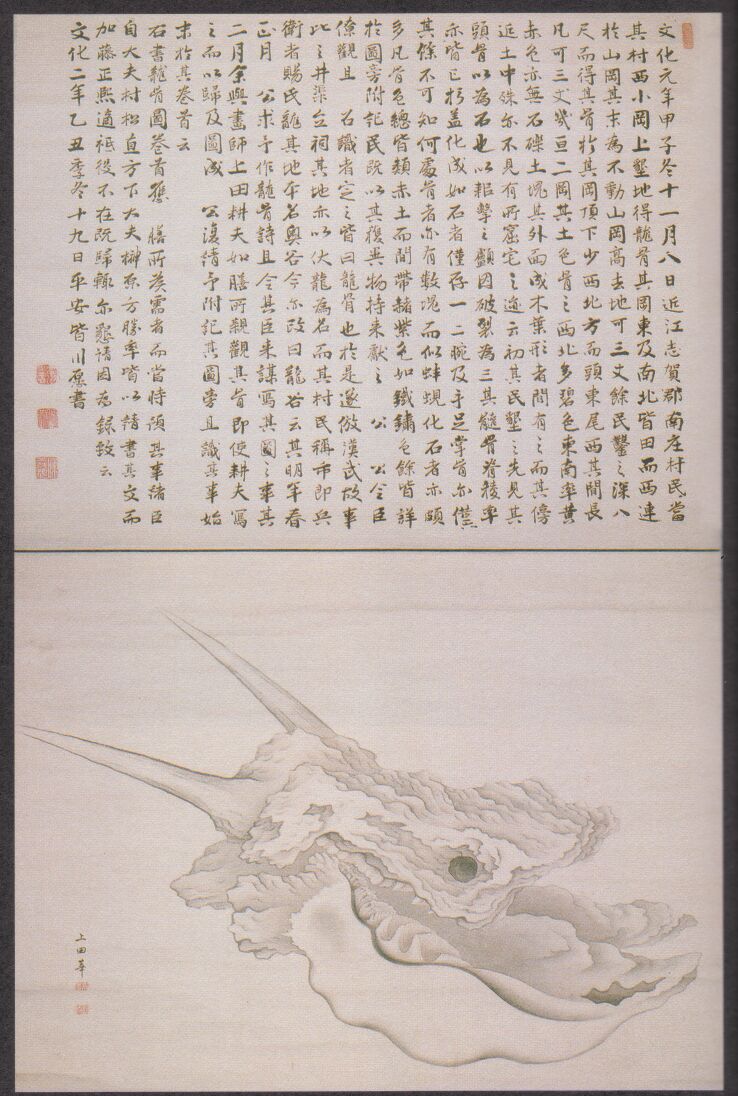 文化元年甲子冬十一月八日近江志賀郡南庄村民當
其村西小岡上墾地得龍骨其岡東及南北皆田而西連
於山岡其末為不動山岡高去地可三丈餘民鑿之深八
尺而得其骨於其岡頂下少西北方而頭東尾西其間長
凡可三丈幾亘二岡其土色骨之西北多碧色東南率黄
赤色亦無石礫土塊其外面成木葉形者間有之而其傍
近土中殊尓不見有所窟宅之迹云初其民墾之先見其
頭骨以為石也以鉏擊之顱因破裂為三其髓骨脊稜率
亦皆已朽蓋化成如石者僅存一二腕及手足掌骨尓僅
其餘不可知何處骨者亦有數塊而似蚌蜆化石者亦頗
多凡骨色總皆類赤土而間帶赭紫色如鐵鏽色餘皆詳
於圖旁附記民既以其複異物持来獻之 公 公令臣
僚觀且 名識者定之皆曰龍骨也於是遂倣漢武故事
此之井渠立祠其地亦以伏龍為名而其村民稱市郎兵
衛者賜民龍其地本名奥谷今尓改曰龍谷云其明年春
正月 公求予作龍骨詩且令其臣来謀寫其圖之事其
二月余與畫師上田耕夫如膳所親觀其骨即使耕夫寫
之而以歸及圖成 公復請予附記其圖旁且識其事始
末於其巻首云
石書龍骨圖巻首應 膳所矦需者而當時預其事諸臣
自大夫村松直方下大夫榊原方勝率皆以請書其文而
加藤正熙適祗役不在既歸輙尓懇請因為録致云
文化二年乙丑季冬十九日平安皆川愿書
上田耕